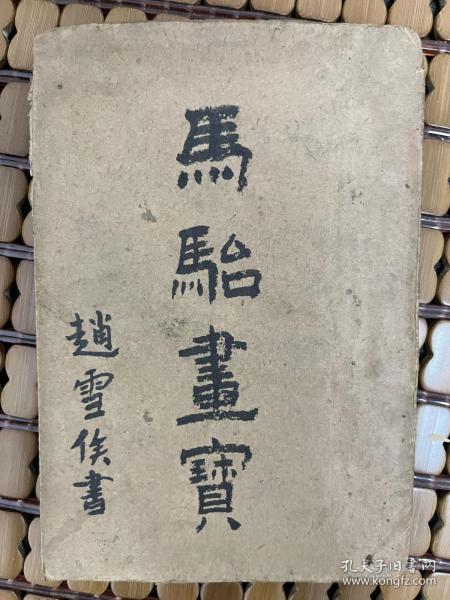 馬駘畫寶
趙雪侯書
孔夫子旧书网
www.kongfz.com